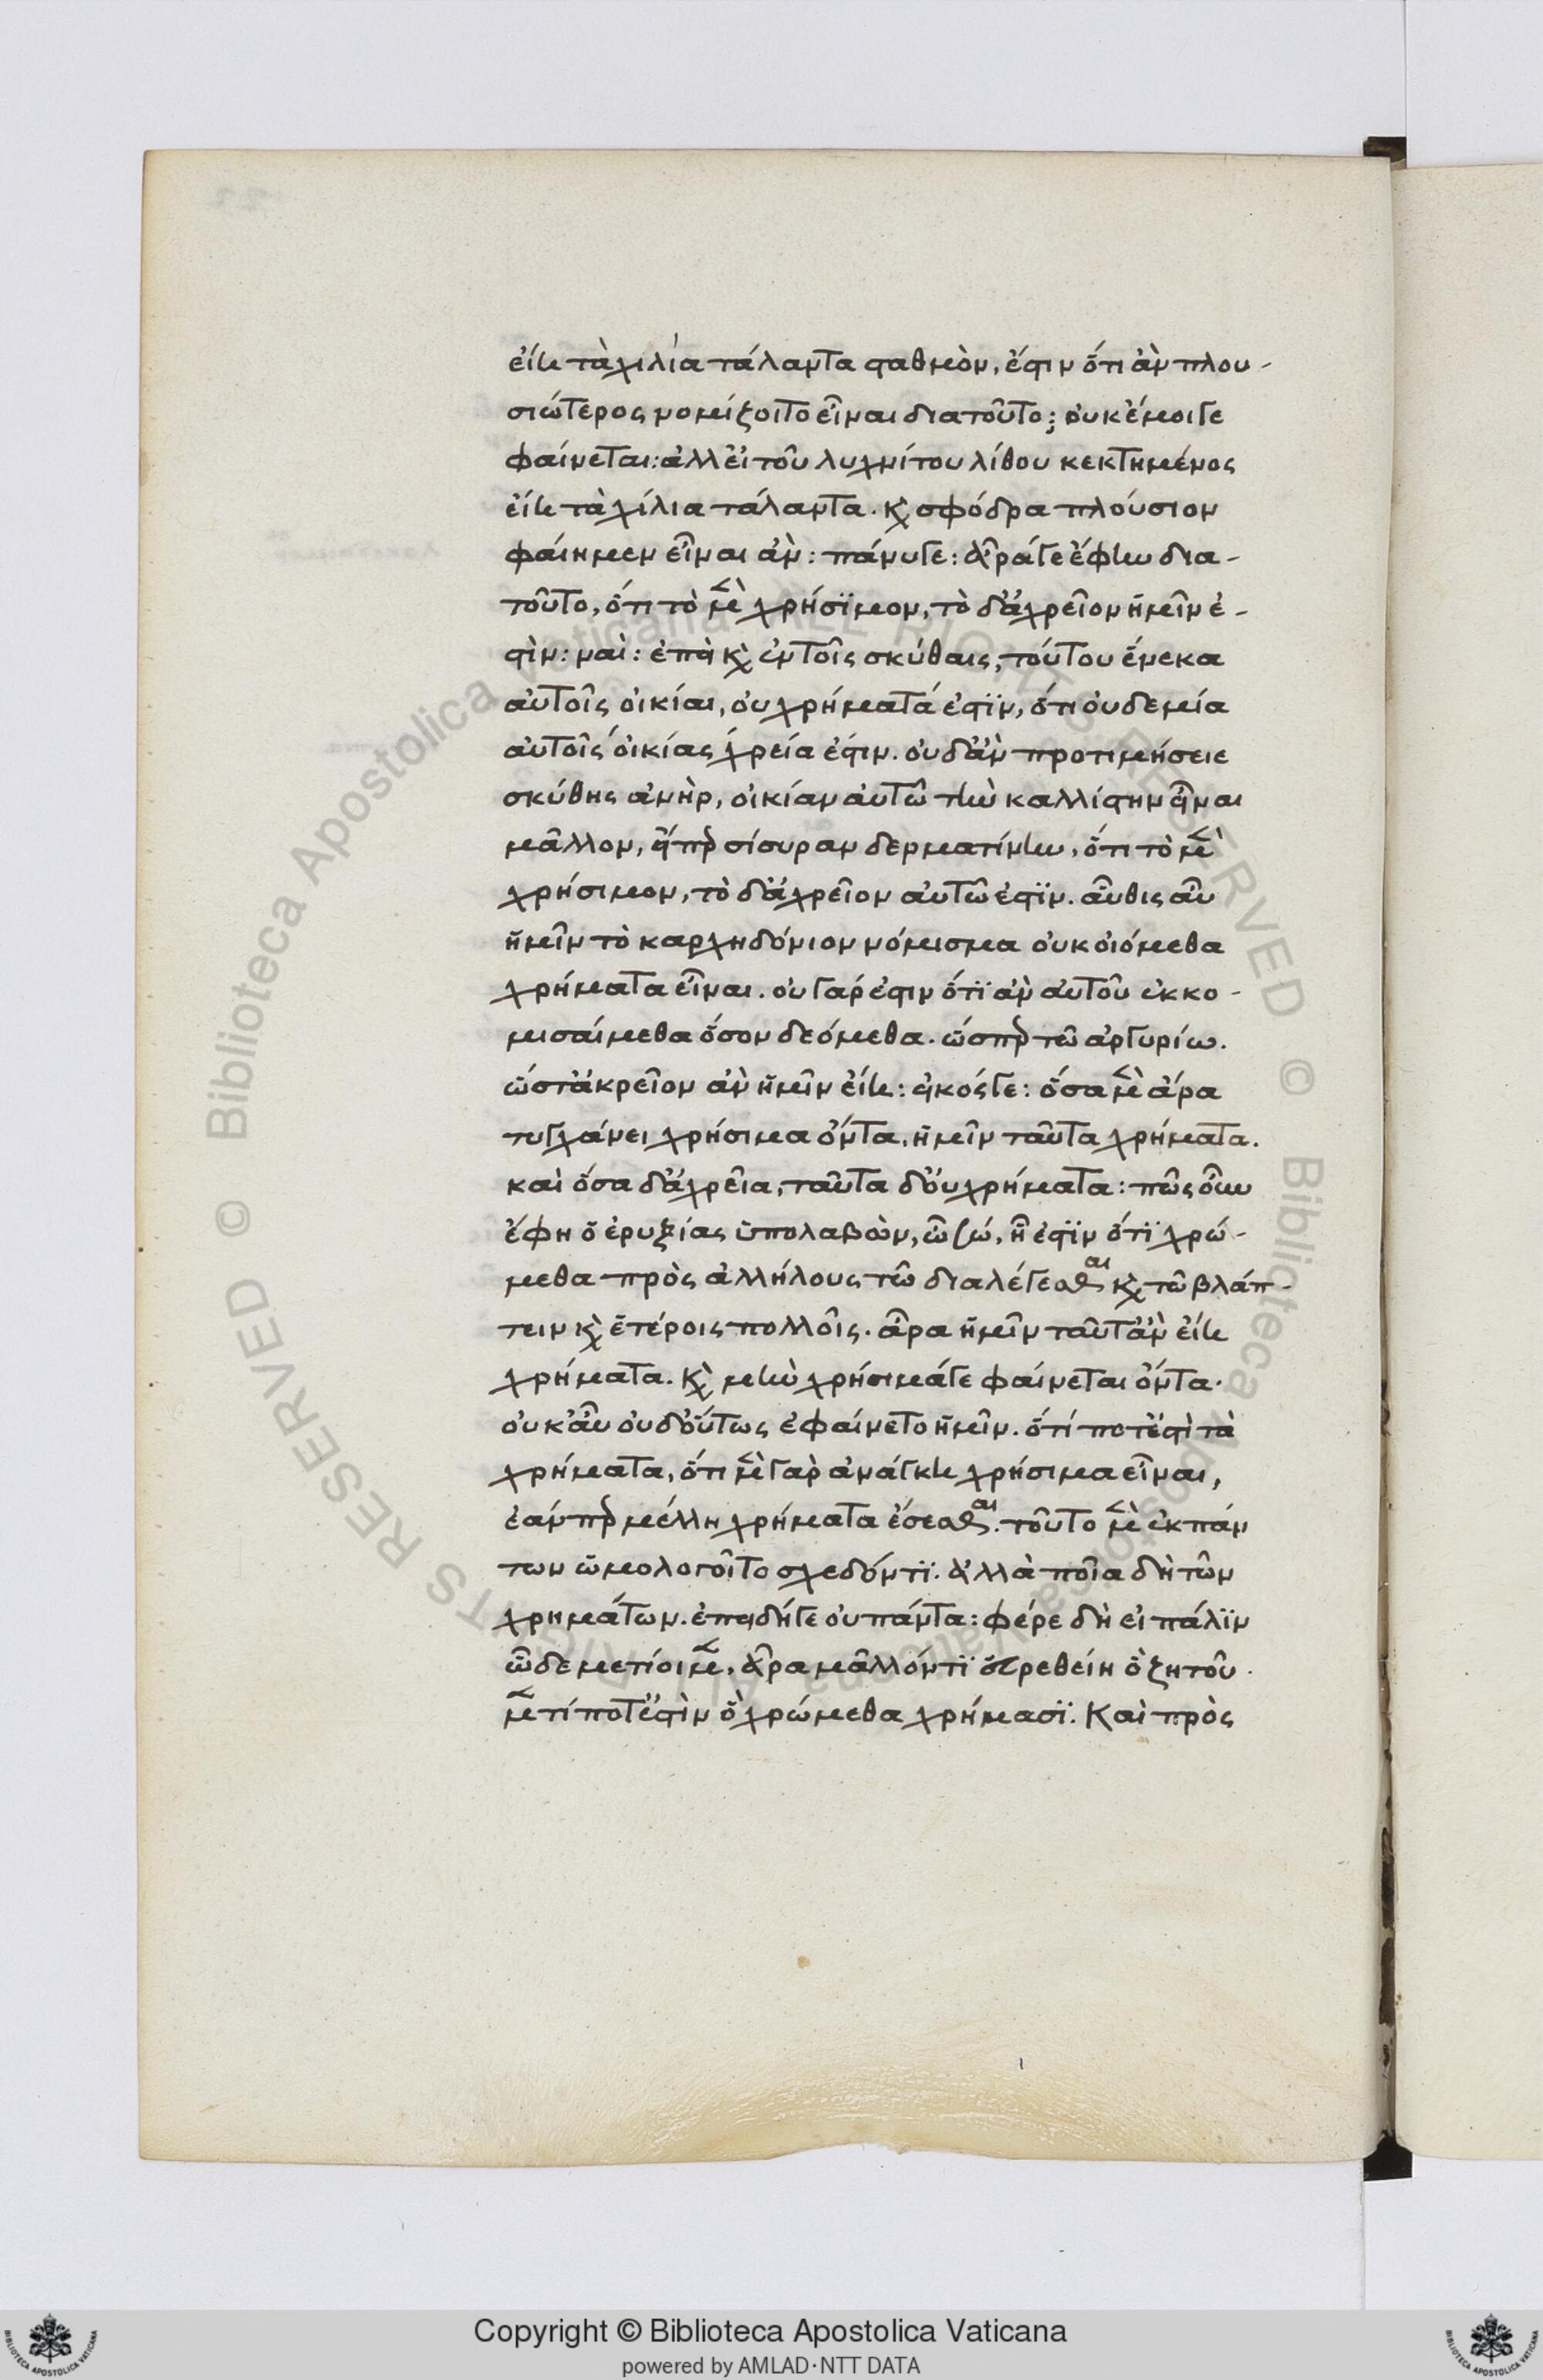 εἴη τὰ χιλία τάλαντα σταθμὸν, ἔστιν ὅτι ἂν πλου-
σιώτερος νομίζοιτο εἶναι διατοῦτο; οὐκ ἔμοιγε
φαίνεται: ἀλλ εἰ τοῦ λυχνίτου λίθου κεκτημένος
εἴη τὰ χίλια τάλαντα. κ̀ σφόδρα πλούσιον
φαίημεν εἶναι ἄν: πάνυγε: ἆράγε ἔφην δια-
τοῦτο, ὅτι τὸ μὲ̀ν χρήσϊμον, τὸ δ ἀχρεῖον ἡμῖν ἐ-
στὶν: ναὶ: ἐπεὶ κ̀ ἐν τοῖς σκύθαις, τούτου ἕνεκα
αὐτοῖς οἰκίαι, οὐ χρήματά ἐστϊν, ὅτι οὐδεμία
αὐτοῖς οἰκίας χρεία ἐστιν. οὐδ ἂν προτιμήσειε
σκύθης ἀνὴρ, οἰκίαν αὐτῶ τὴν καλλίστην εἶναι
μᾶλλον, ἤπερ σίσυραν δερματίνην, ὅτι τὸ μὲν
χρήσιμον, τὸ δ ἀχρεῖον αὐτῶ ἐστϊν. αὖθις αὖ
ἡμῖν τὸ καρχηδόνιον νόμισμα οὐκ οἰόμεθα
χρήματα εἶναι. οὐ γάρ ἐστιν ὅτϊ ἂν αὐτοῦ ἐκκο-
μισαίμεθα ὅσον δεόμεθα. ὥσπερ τῶ ἀργυρίω.
ὥστ ἀκρεῖον ἂν ἡμῖν εἴη: εἰκόςγε: ὅσα μὲν ἄρα
τυγχάνει χρήσιμα ὄντα, ἡμῖν ταῦτα χρήματα.
καὶ ὅσα δ ἀχρεῖα, ταῦτα δ οὐ χρήματα: πῶς οὖν
ἔφη ὁ ἐρυξίας ὑπολαβὼν, ὦ ζώ, ἦ ἐστϊν ὅτϊ χρώ-
μεθα πρὸς ἀλλήλους τῶ διαλέγεσθαι κ̀ τῶ βλάπ-
τειν κ̀ ἑτέροις πολλοῖς. ἆρα ἡμῖν ταῦτ ἂν εἴη
χρήματα. κ̀ μὴν χρήσιμάγε φαίνεται ὄντα.
οὐκ αὖ οὐδ οὕτως ἐφαίνετο ἡμῖν. ὅτί ποτ ἐστὶ τὰ
χρήματα, ὅτι μὲν γὰρ ἀνάγκη χρήσιμα εἶναι,
ἐάνπερ μέλλη χρήματα ἔσεσθαι. τοῦτο μὲν ἐκ πάν
των ὡμολογοῖτο σχεδόντϊ. ἀλλὰ ποῖα δὴ τῶν
χρημάτων. ἐπειδήγε οὐ πάντα: φέρε δὴ εἰ πάλϊν
ὧδε μετίοιμεν, ἆρα μᾶλλόντϊ εὑρεθείη ὃ ζητοῦ.
μεν τί ποτ ἐστὶν ὃ χρώμεθα χρήμασϊ. Καὶ πρὸς
Copyright © Biblioteca Apostolica Vaticana
powered by AMLAD·NTT DATA